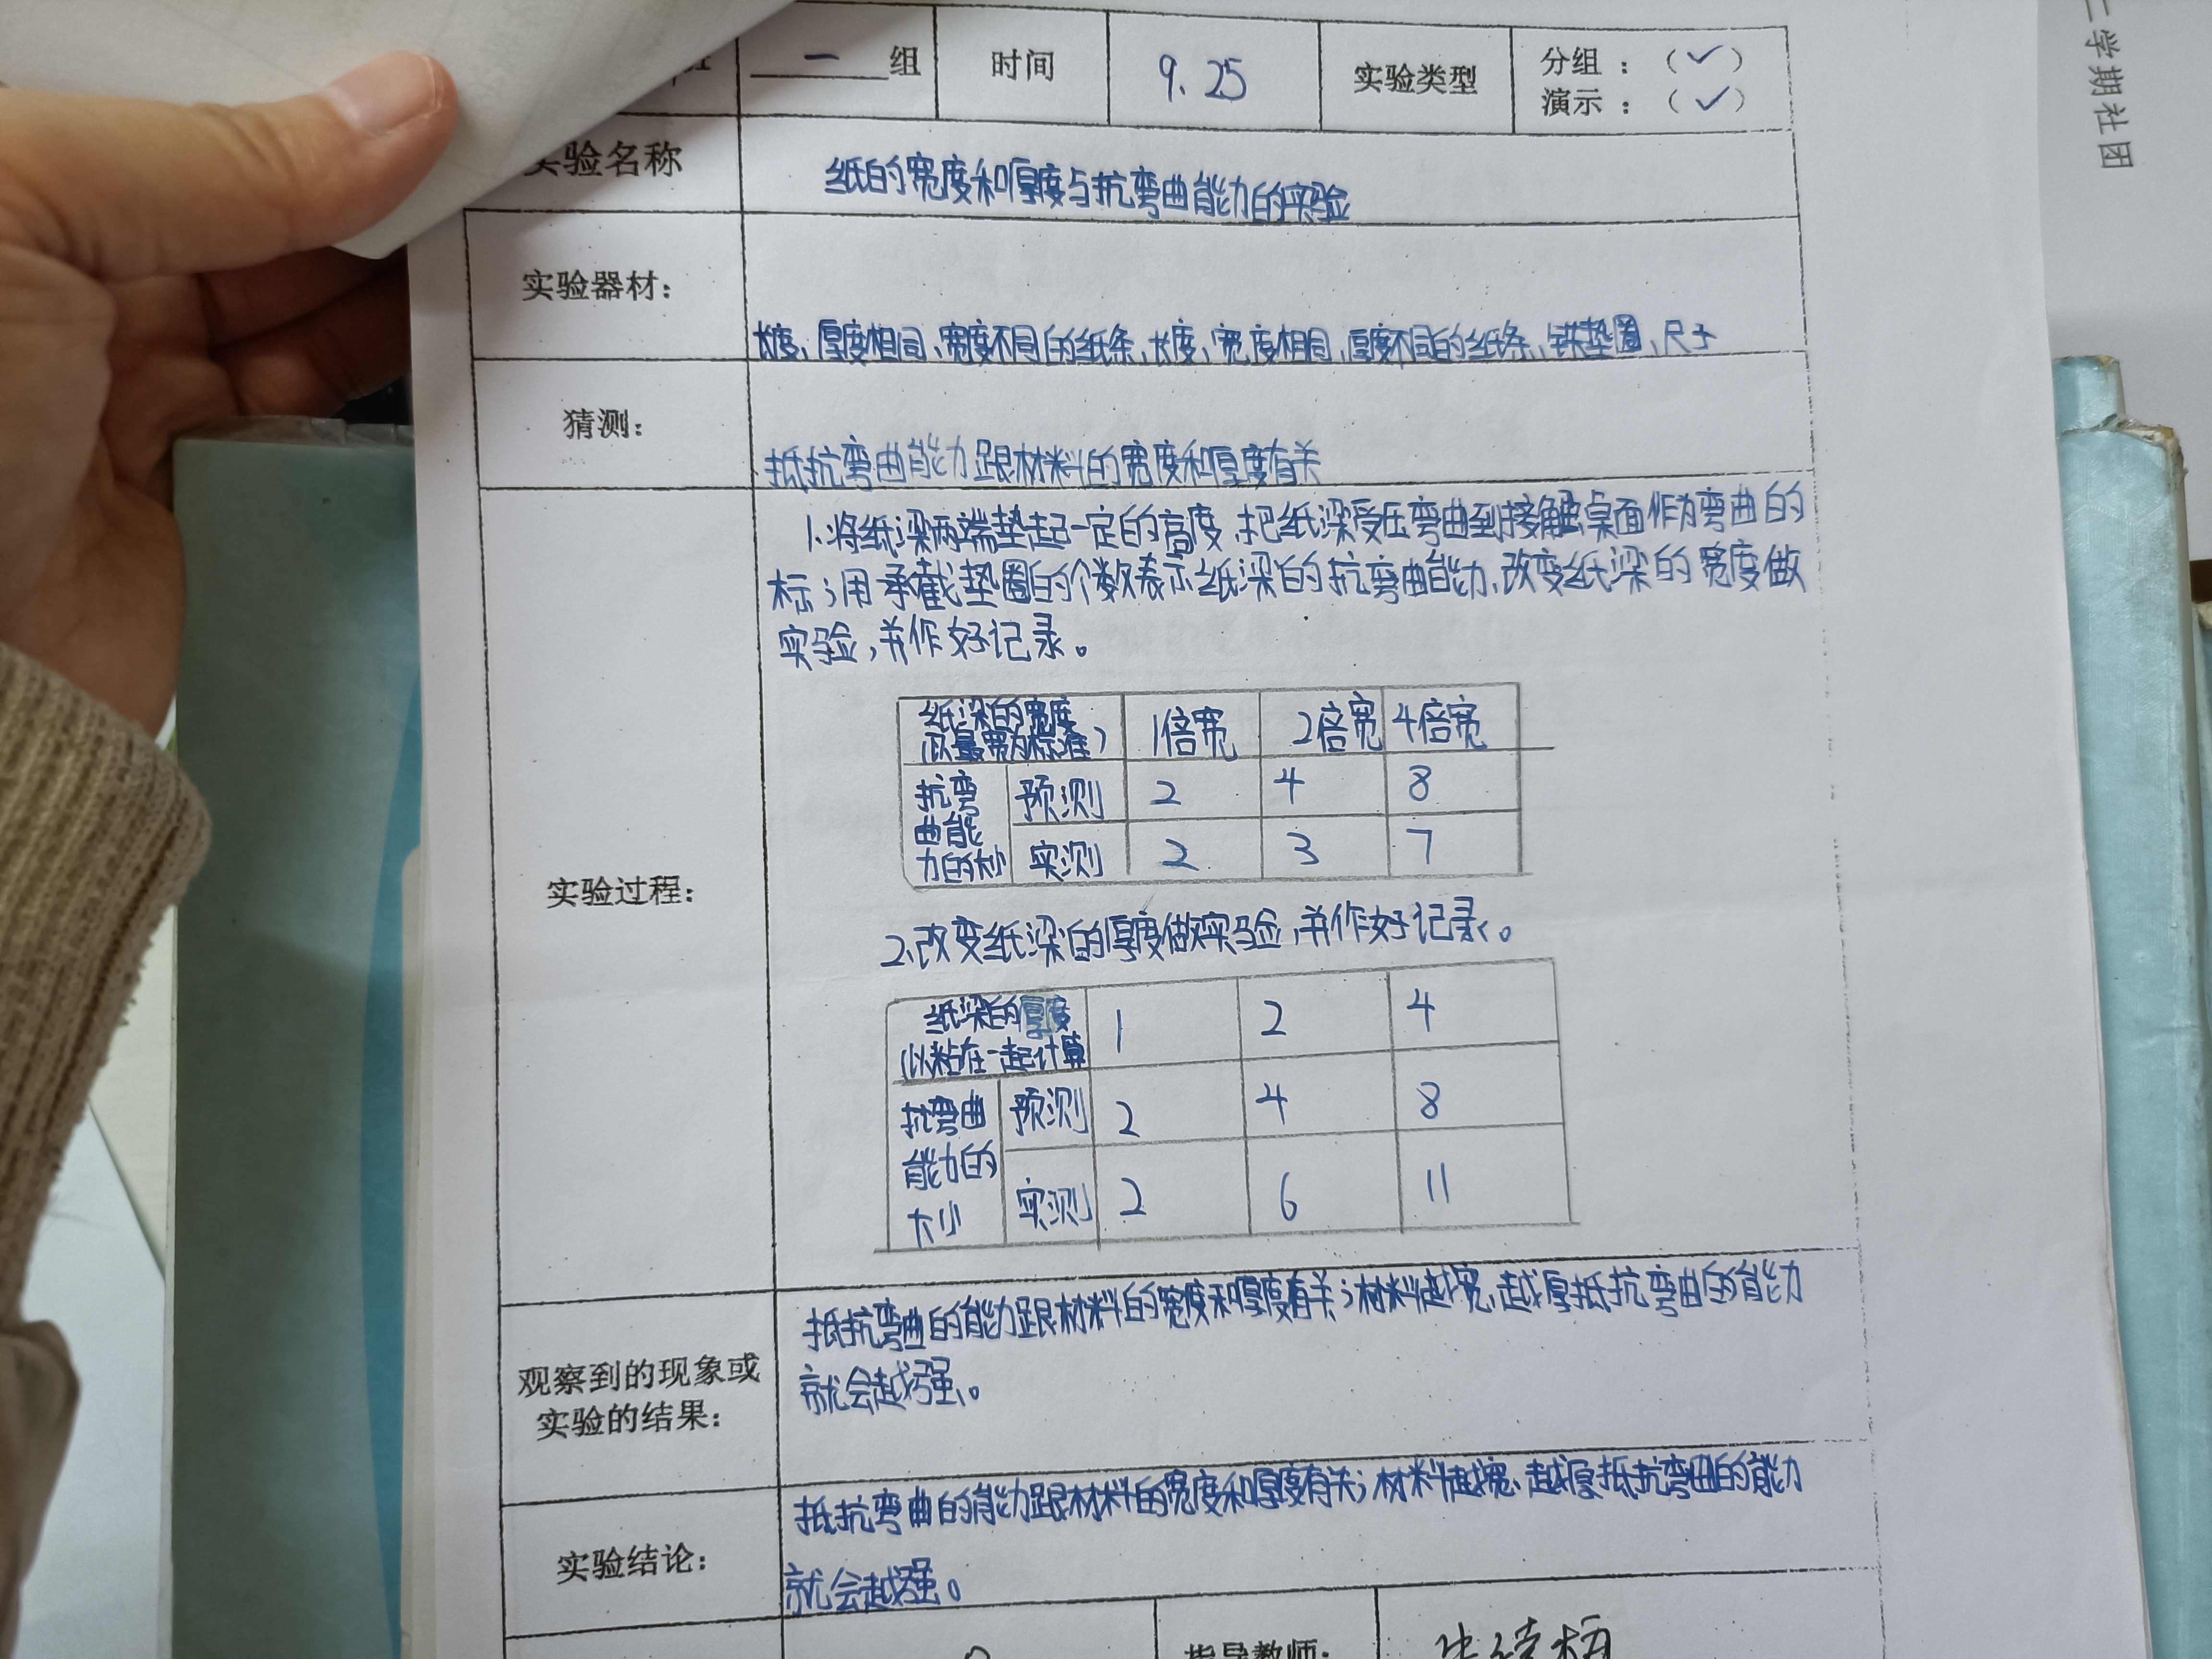 一 组 时间 9.25 实验类型 分组：（✓）
演示：（✓）
实验名称 纸的宽度和厚度与抗弯曲能力的实验
实验器材： 长度、厚度相同、宽度不同的纸条、长度、宽度相同、厚度不同的纸条、铁垫圈、尺子
猜测： 抵抗弯曲能力跟材料的宽度和厚度有关
实验过程：
1.将纸梁两端垫起一定的高度,把纸梁受压弯曲到接触桌面作为弯曲的
标;用承截垫圈的个数表示纸梁的抗弯曲能力、改变纸梁的宽度做
实验,并作好记录。
纸梁的宽度 1倍宽 2倍宽 4倍宽
抗弯 预测 2 4 8
曲能
实测 2 3 7
2.改变纸梁的厚度做实验,并作好记录。
纸梁的厚度 1 2 4
(以粘在一起计算
抗弯曲 预测 2 4 8
能力的
大小 实测 2 6 11
观察到的现象或
实验的结果：
抵抗弯曲的能力跟材料的宽度和厚度有关;材料越宽、越厚抵抗弯曲的能力
就会越强。
实验结论：
抵抗弯曲的能力跟材料的宽度和厚度有关;材料越宽、越厚抵抗弯曲的能力
就会越强。
指导教师：
二学期社团